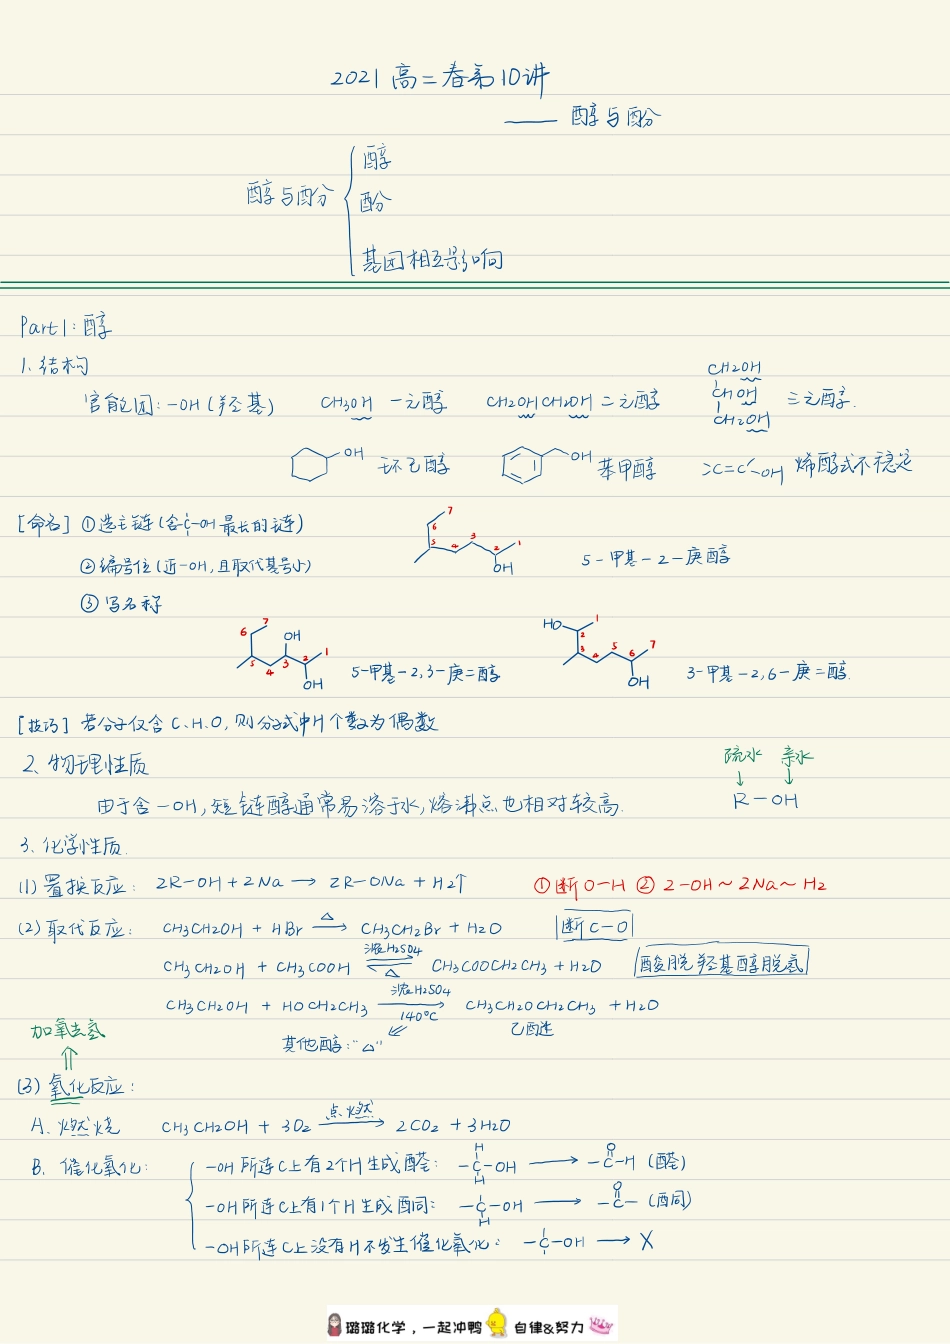 2021高二春第10讲
—— 醇与酚
醇与酚
醇
酚
基团相互影响
Part1：醇
1、结构
官能团：-OH（羟基） CH3OH 一元醇 CH2OHCH2OH 二元醇 CH2OH CHOH CH2OH 三元醇.
OH 环己醇 OH 苯甲醇 >C=C-OH 烯醇式不稳定
[命名] ①选主链（含C-OH最长的链） 7 6 5 4 3 2 1 OH 5-甲基-2-庚醇
②编号位（近-OH，且取代基号小）
③写名称
6 7 OH 5 4 3 2 1 OH 5-甲基-2,3-庚二醇 HO 1 2 3 4 5 6 7 OH 3-甲基-2,6-庚二醇.
[技巧] 若分子仅含C、H、O，则分子式中H个数为偶数
2、物理性质
疏水 亲水
由于含-OH，短链醇通常易溶于水，熔沸点也相对较高. R-OH
3、化学性质.
(1)置换反应： 2R-OH+2Na → 2R-ONa+H2↑ ①断O-H ②2-OH~2Na~H2
(2)取代反应： CH3CH2OH + HBr △→ CH3CH2Br + H2O 断C-O
CH3CH2OH + CH3COOH 浓H2SO4 ⇌ △ CH3COOCH2CH3 + H2O 酸脱羟基醇脱氢
CH3CH2OH + HOCH2CH3 浓H2SO4 → 140℃ CH3CH2OCH2CH3 + H2O
乙醚
其他醇：“△”
加氧去氢
(3)氧化反应：
A、燃烧 CH3CH2OH + 3O2 点燃→ 2CO2 + 3H2O
B、催化氧化：
-OH所连C上有2个H生成醛： H -C-OH H → O -C-H（醛）
-OH所连C上有1个H生成酮： -C-OH H → O -C-（酮）
-OH所连C上没有H不发生催化氧化： -C-OH → X
璐璐化学，一起冲鸭 自律&努力